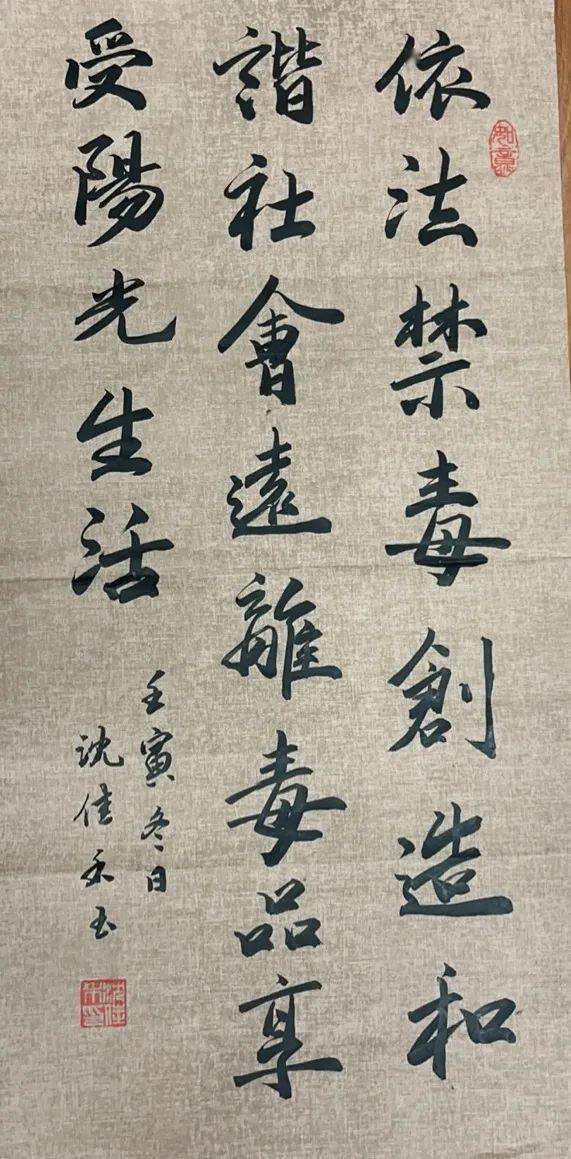 依法禁毒創造和
諧社會遠離毒品享
受陽光生活
壬寅冬日
沈佳禾书
如意